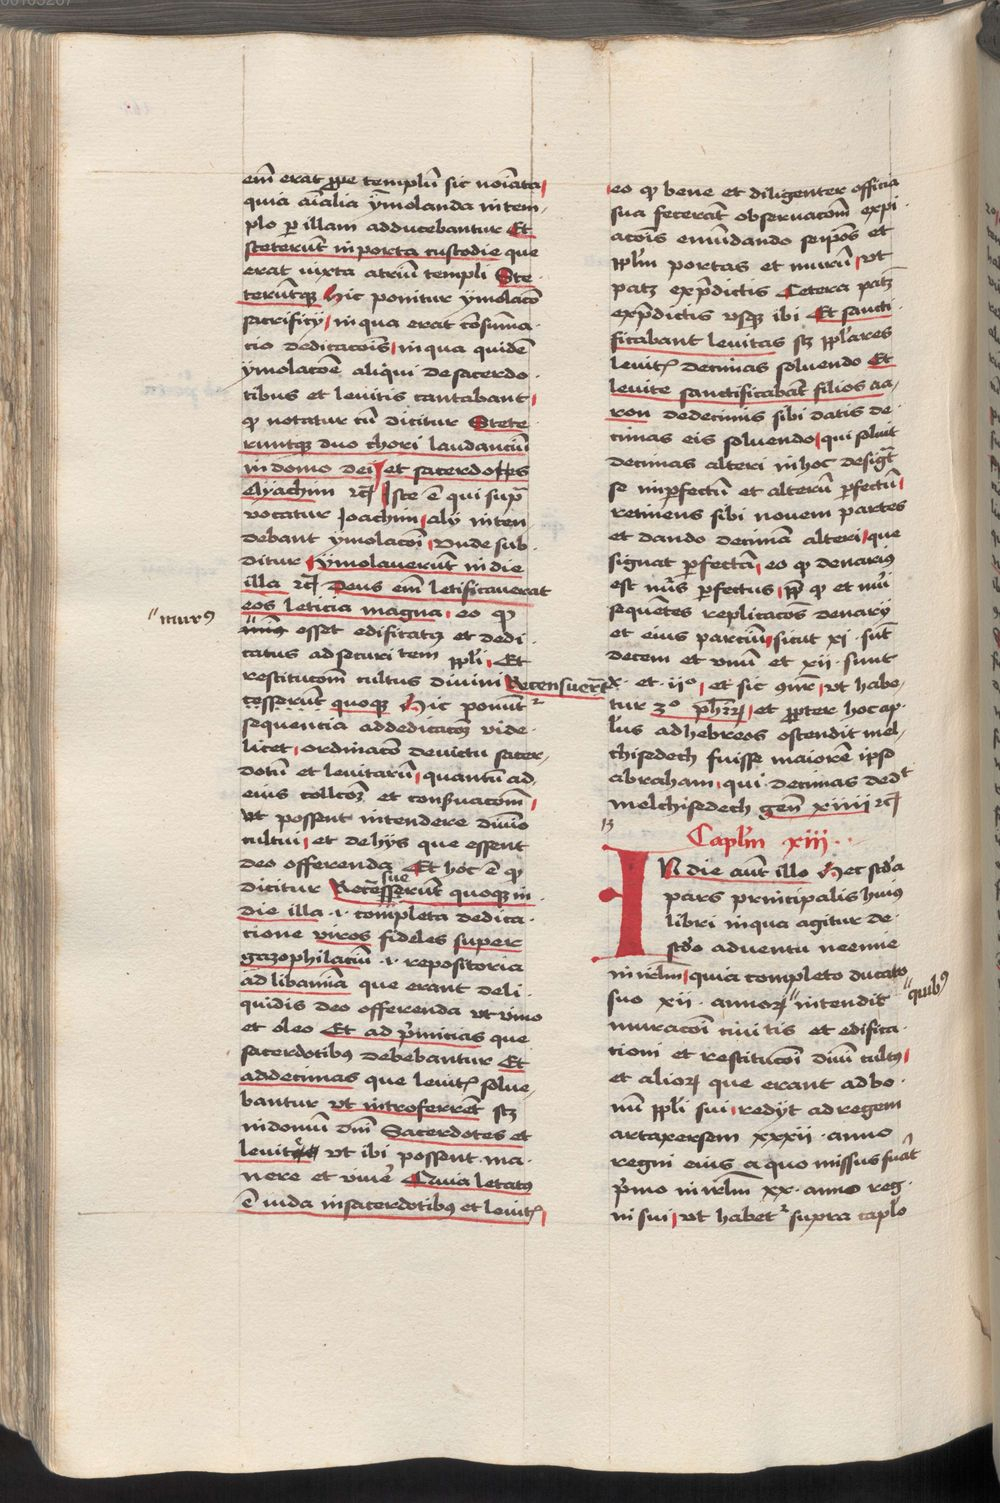 em̄ erat ꝓpe templū sic noīata
quia aīalia ymolanda in tem-
plo ꝑ illam adducebantur Et
steterunt in porta custodie que
erat iuxta atriū templi Ste
terūtqꝫ Hic ponitur ymolacō
sacrificij in qua erat cōsumma-
cio dedicacōis in qua quidē
ymolacōe aliqui de sacerdo-
tibus et leuitis cantabant
ꝙ notatur cū dicitur Stete
runtqꝫ duo chori laudanciū
in domo dei et sacerdotes
Elyachim ⁊c̄ Iste ē qui supͣ
vocatur Joachim alij inten
debant ymolacōi Vnde sub-
ditur Ymolauerunt in die
illa ⁊c̄ Deus em̄ letificauerat
eos leticia magna eo ꝙ
murꝰ
essēt edificatus et dedi-
catus ad securitem ppl̄i Et
restitucōm cultus diuini Recensuerūt
quoqꝫ Hic ponūtᷣ
sequencia ad dedicacōꝫ vide-
licet ordinacō de victu sacer-
dotū et leuitarū quantū ad
eius collcōꝫ et conẜuacōm
vt possent intendere diuīo
cultui et de hijs que essent
deo offerenda Et hoc ē ꝙ
dicitur Recēsuerūt quoqꝫ in
die illa .i. completa dedica-
cione viros fideles super
gazophilaciū .i. repositoria
ad libamīa que erant deli-
quidis deo offerenda vt vino
et oleo Et ad p̄micias que
sacerdotibꝰ debebantur Et
ad decimas que leuitꝭ solue-
bantur vt introferrēt scꝫ
in domū dn̄i Sacerdotes et
leuite vt ibi possent ma-
nere et viuē Quia letatꝰ
ē iuda in sacerdotibꝰ et leuitꝭ
eo ꝙ bene et diligenter officia
sua fecerāt obseruacōm expi
acōis emūdando seip̄os et
ppl̄m portas et murū vt
patꝫ ex p̄dictis Cetera patꝫ
ex p̄dictis vsqꝫ ibi Et sancti
ficabant leuitas scꝫ ppl̄ares
leuitꝭ decimas soluendo Et
leuite sanctificabāt filios aa-
ron de decimis sibi datis de-
cimas eis soluendo qui soluit
decimas alteri in hoc designͣt
se imꝑfectū et alterū ꝑfectū
retinens sibi nouem partes
et dando decimā alteri que
signat ꝑfectā eo ꝙ denariꝰ
est nūs ꝑfectus ꝙ et nūi
sequētes replicacōēs denarij
et eius parciū sicut xi sūt
decem et vnū et xii sunt
x et ii° et sic vt habe-
tur 3° et ꝓpter hoc ap-
l̄us ad hebreos ostendit mel-
chisedech fuisse maiorē ipso
abraham qui decimas dedᷠt
melchisedech gen̄ xiiii ⁊c̄
13
Capl̄m xiii
IN die aūt illo Hec scd̄a
pars principalis huius
libri in qua agitur de
scd̄o aduentu neemie
in irl̄m quia completo ducato
suo xii annoꝝ intendit
quibꝰ
muracōi ciuitatis et edifica-
cioni et restitucōi diuī cultꝰ
et alioꝝ que erant ad bo-
nū ppl̄i sui redijt ad regem
artaxersem xxxii anno
regni eius a quo missus fuāt
p̄mo in irl̄m xx anno reg-
ni sui vt habetᷣ supra capl̄o